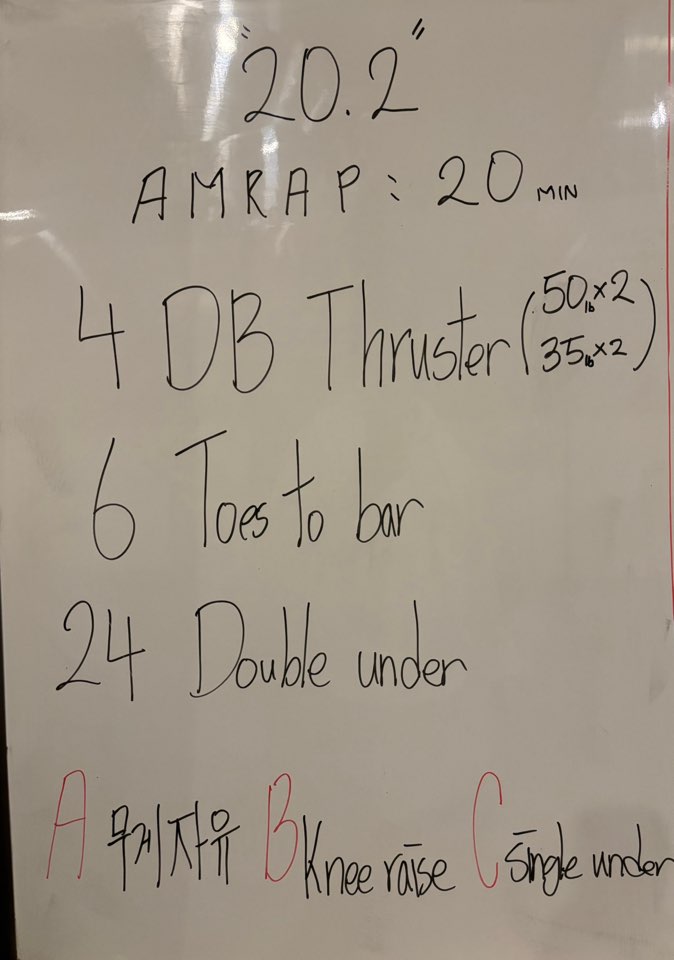 "20.2"
AMRAP: 20 MIN
4 DB Thruster (50lb×2
35lb×2)
6 Toes to bar
24 Double under
A 무게자유 B Knee raise C single under